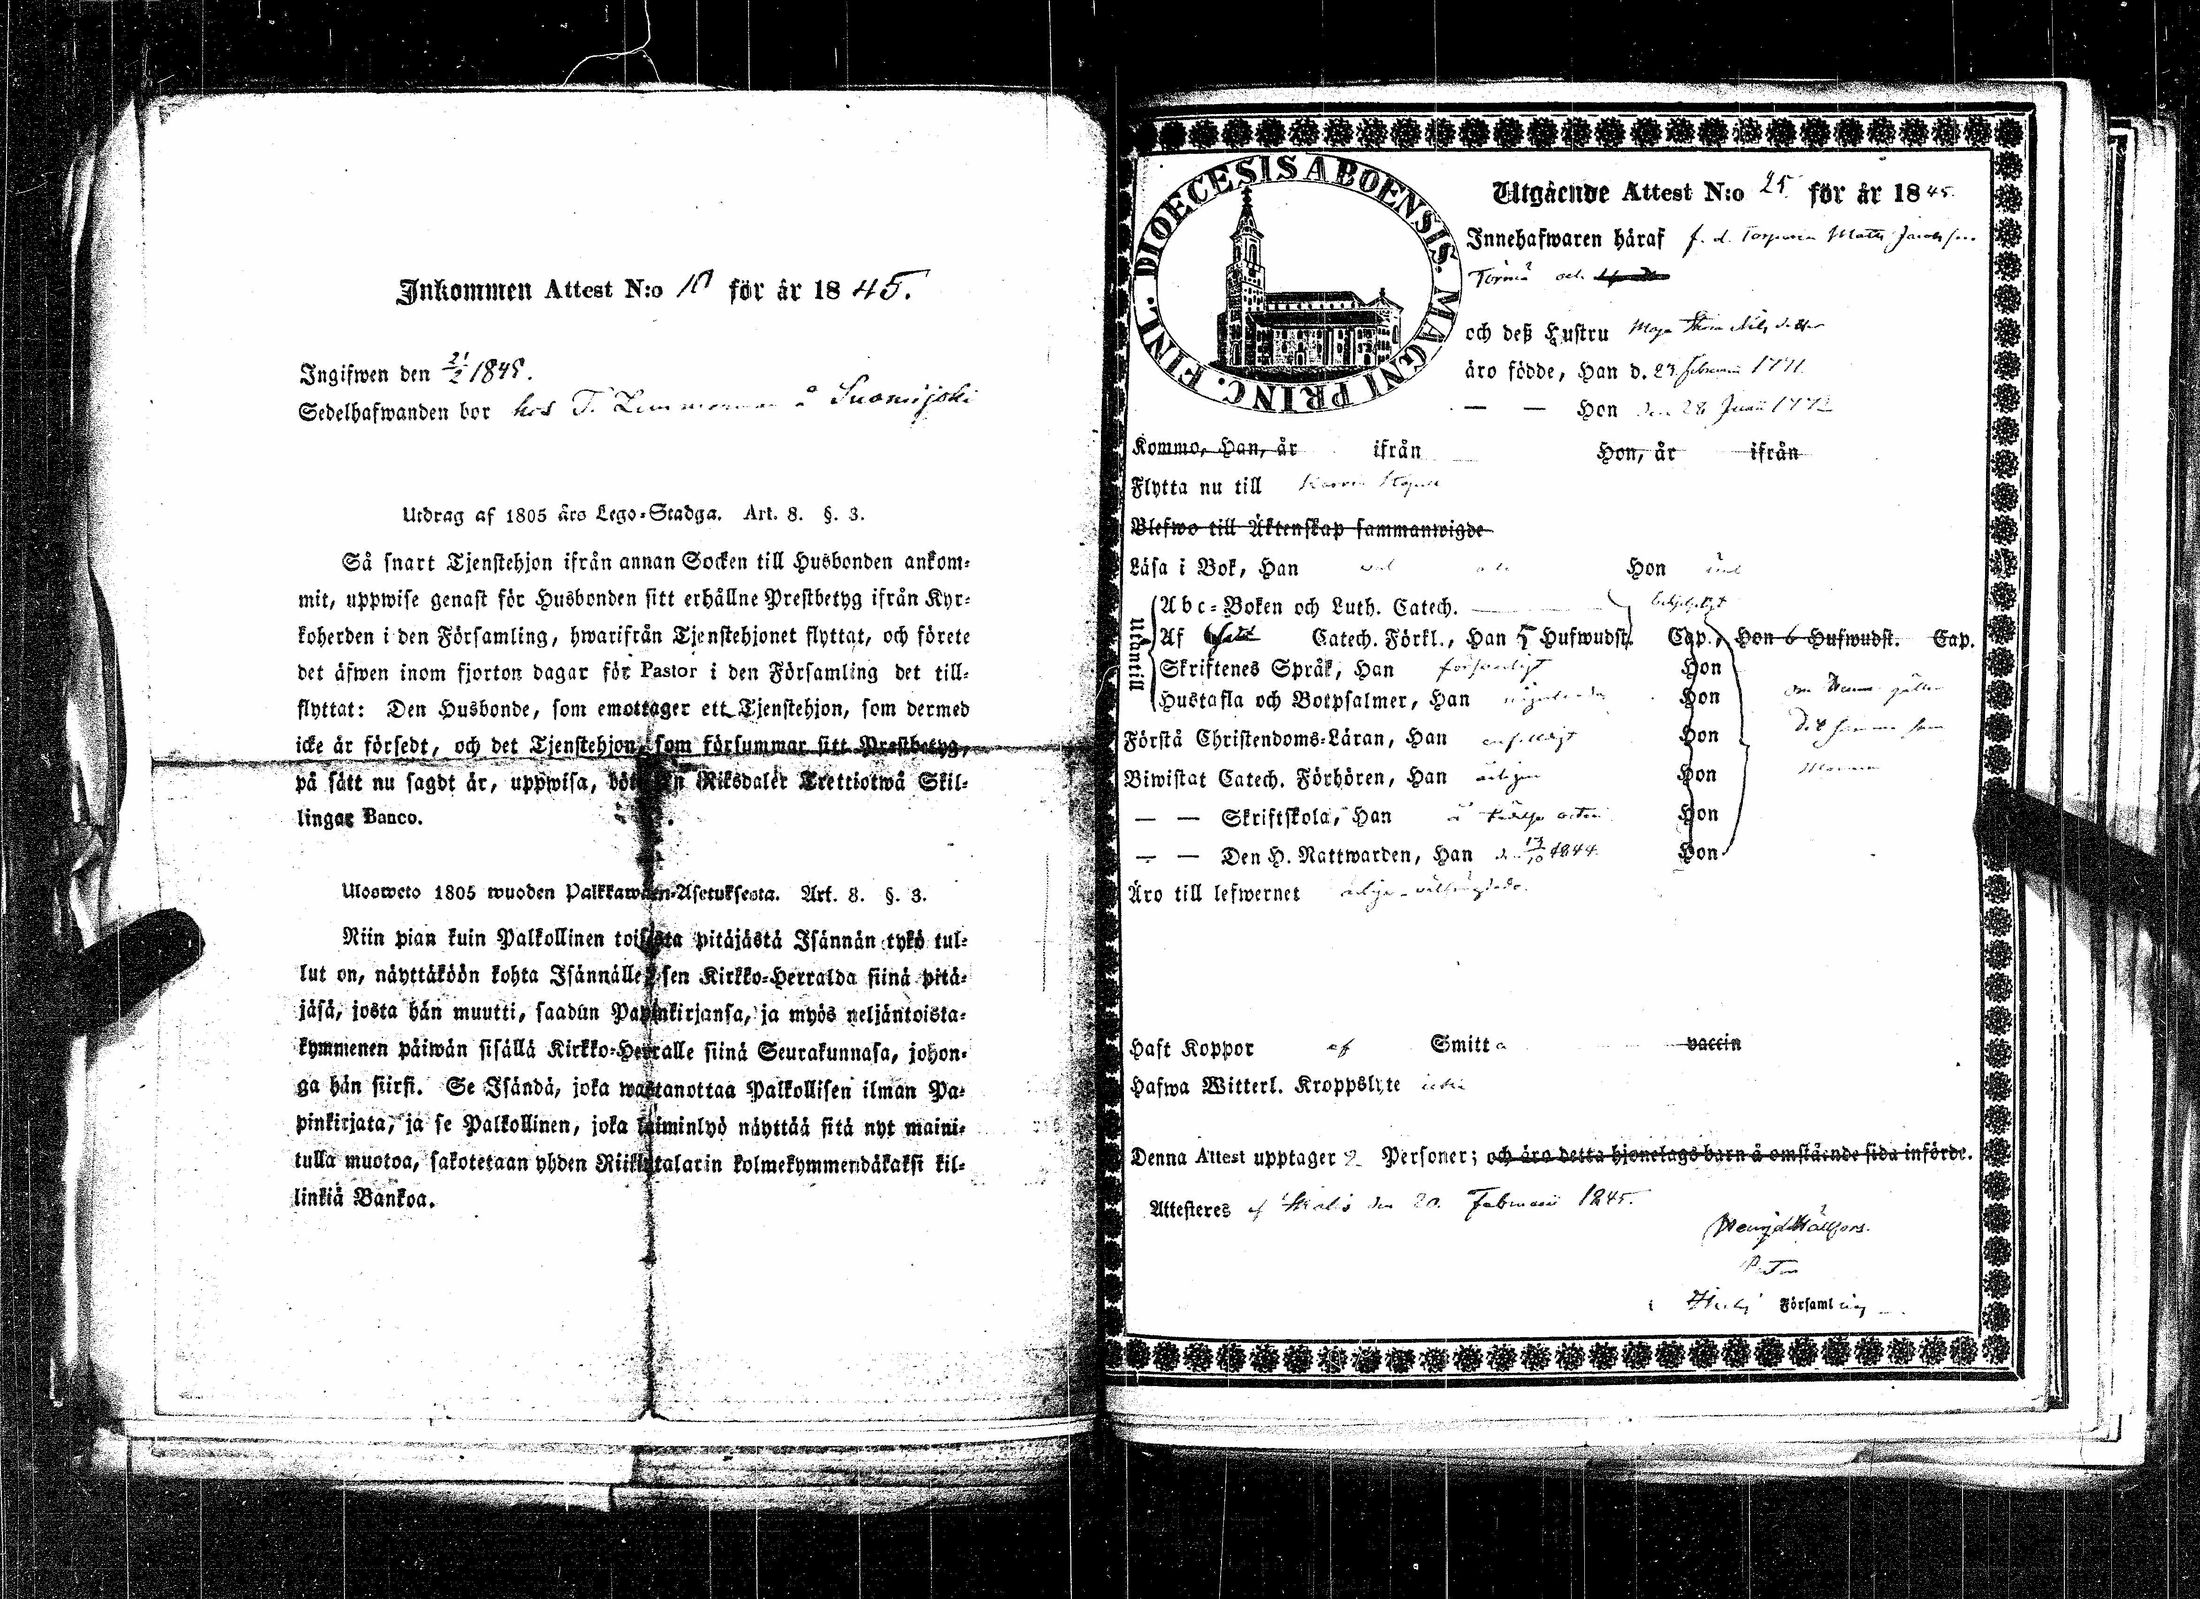 Inkommen Attest N:o 10 för år 1845.
Ingifwen den 21/2 1845.
Sedelhafwanden bor hos T. Zimmerman å Suomijoki
Utdrag af 1805 års Lego-Stadga. Art. 8. §. 3.
Så snart Tjenstehjon ifrån annan Socken till Husbonden ankom-
mit, uppwise genast för Husbonden sitt erhållne Prestbetyg ifrån Kyr-
koherden i den Församling, hwarifrån Tjenstehjonet flyttat, och förete
det äfwen inom fjorton dagar för Pastor i den Församling det till-
flyttat: Den Husbonde, som emottager ett Tjenstehjon, som dermed
icke är försedt, och det Tjenstehjon, som försummar sitt Prestbetyg,
på sätt nu sagdt är, uppwisa, böte En Riksdaler Trettiotwå Skil-
lingar Banco.
Ulosweto 1805 wuoden Palkkawäen-Asetuksesta. Art. 8. §. 3.
Niin pian kuin Palkollinen toisesta pitäjästä Isännän tykö tul-
lut on, näyttäköön kohta Isännälle sen Kirkko-Herralda siinä pitä-
jäsä, josta hän muutti, saadun Papinkirjansa, ja myös neljäntoista-
kymmenen päiwän sisällä Kirkko-Herralle siinä Seurakunnasa, johon-
ga hän siirsi. Se Isändä, joka wastanottaa Palkollisen ilman Pa-
pinkirjata, ja se Palkollinen, joka laiminlyö näyttää sitä nyt maini-
tulla muotoa, sakotetaan yhden Riikintalarin kolmekymmendäkaksi kil-
linkiä Bankoa.
DIOECESIS ABOENSIS. MAGNI PRINC. FINL.
Utgående Attest N:o 25 för år 1845.
Innehafwaren häraf f. d. Torparen Matts Jacobsson
Törmä och
och deß Hustru Maja Nilsdotter
äro födde, Han d. 23 februarii 1771
— — Hon den 28 Junii 1772
Kommo, Han, år ifrån Hon, år ifrån
Flytta nu till
Blefwo till Äktenskap sammanwigde
Läsa i Bok, Han Hon
Utantill
Abc-Boken och Luth. Catech. behjelpligt
Af Catech. Förkl., Han 5 Hufwudst. Cap., Hon 6 Hufwudst. Cap.
Skriftenes Språk, Han försvarligt Hon
Hustafla och Botpsalmer, Han Hon om denna gäller
Förstå Christendoms-Läran, Han enfaldigt Hon det samma som
Biwistat Catech. Förhören, Han årligen Hon Mannen
— — Skriftskola, Han Hon
— — Den H. Nattwarden, Han den 13/10 1844. Hon
Äro till lefwernet
Haft Koppor af Smitta vaccin
Hafwa Witterl. Kroppslyte icke
Denna Attest upptager 2 Personer; och äro detta hjonelags barn å omstående sida införde.
Attesteres af den 20. Februarii 1845.
Pastor
i Församling